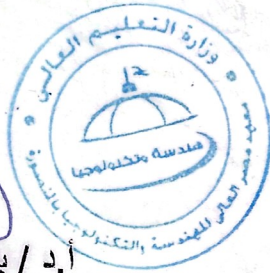 وزارة التعليم العالي
هندسة وتكنولوجيا
معهد مصر العالي للهندسة والتكنولوجيا بالمنصورة
أ.د /